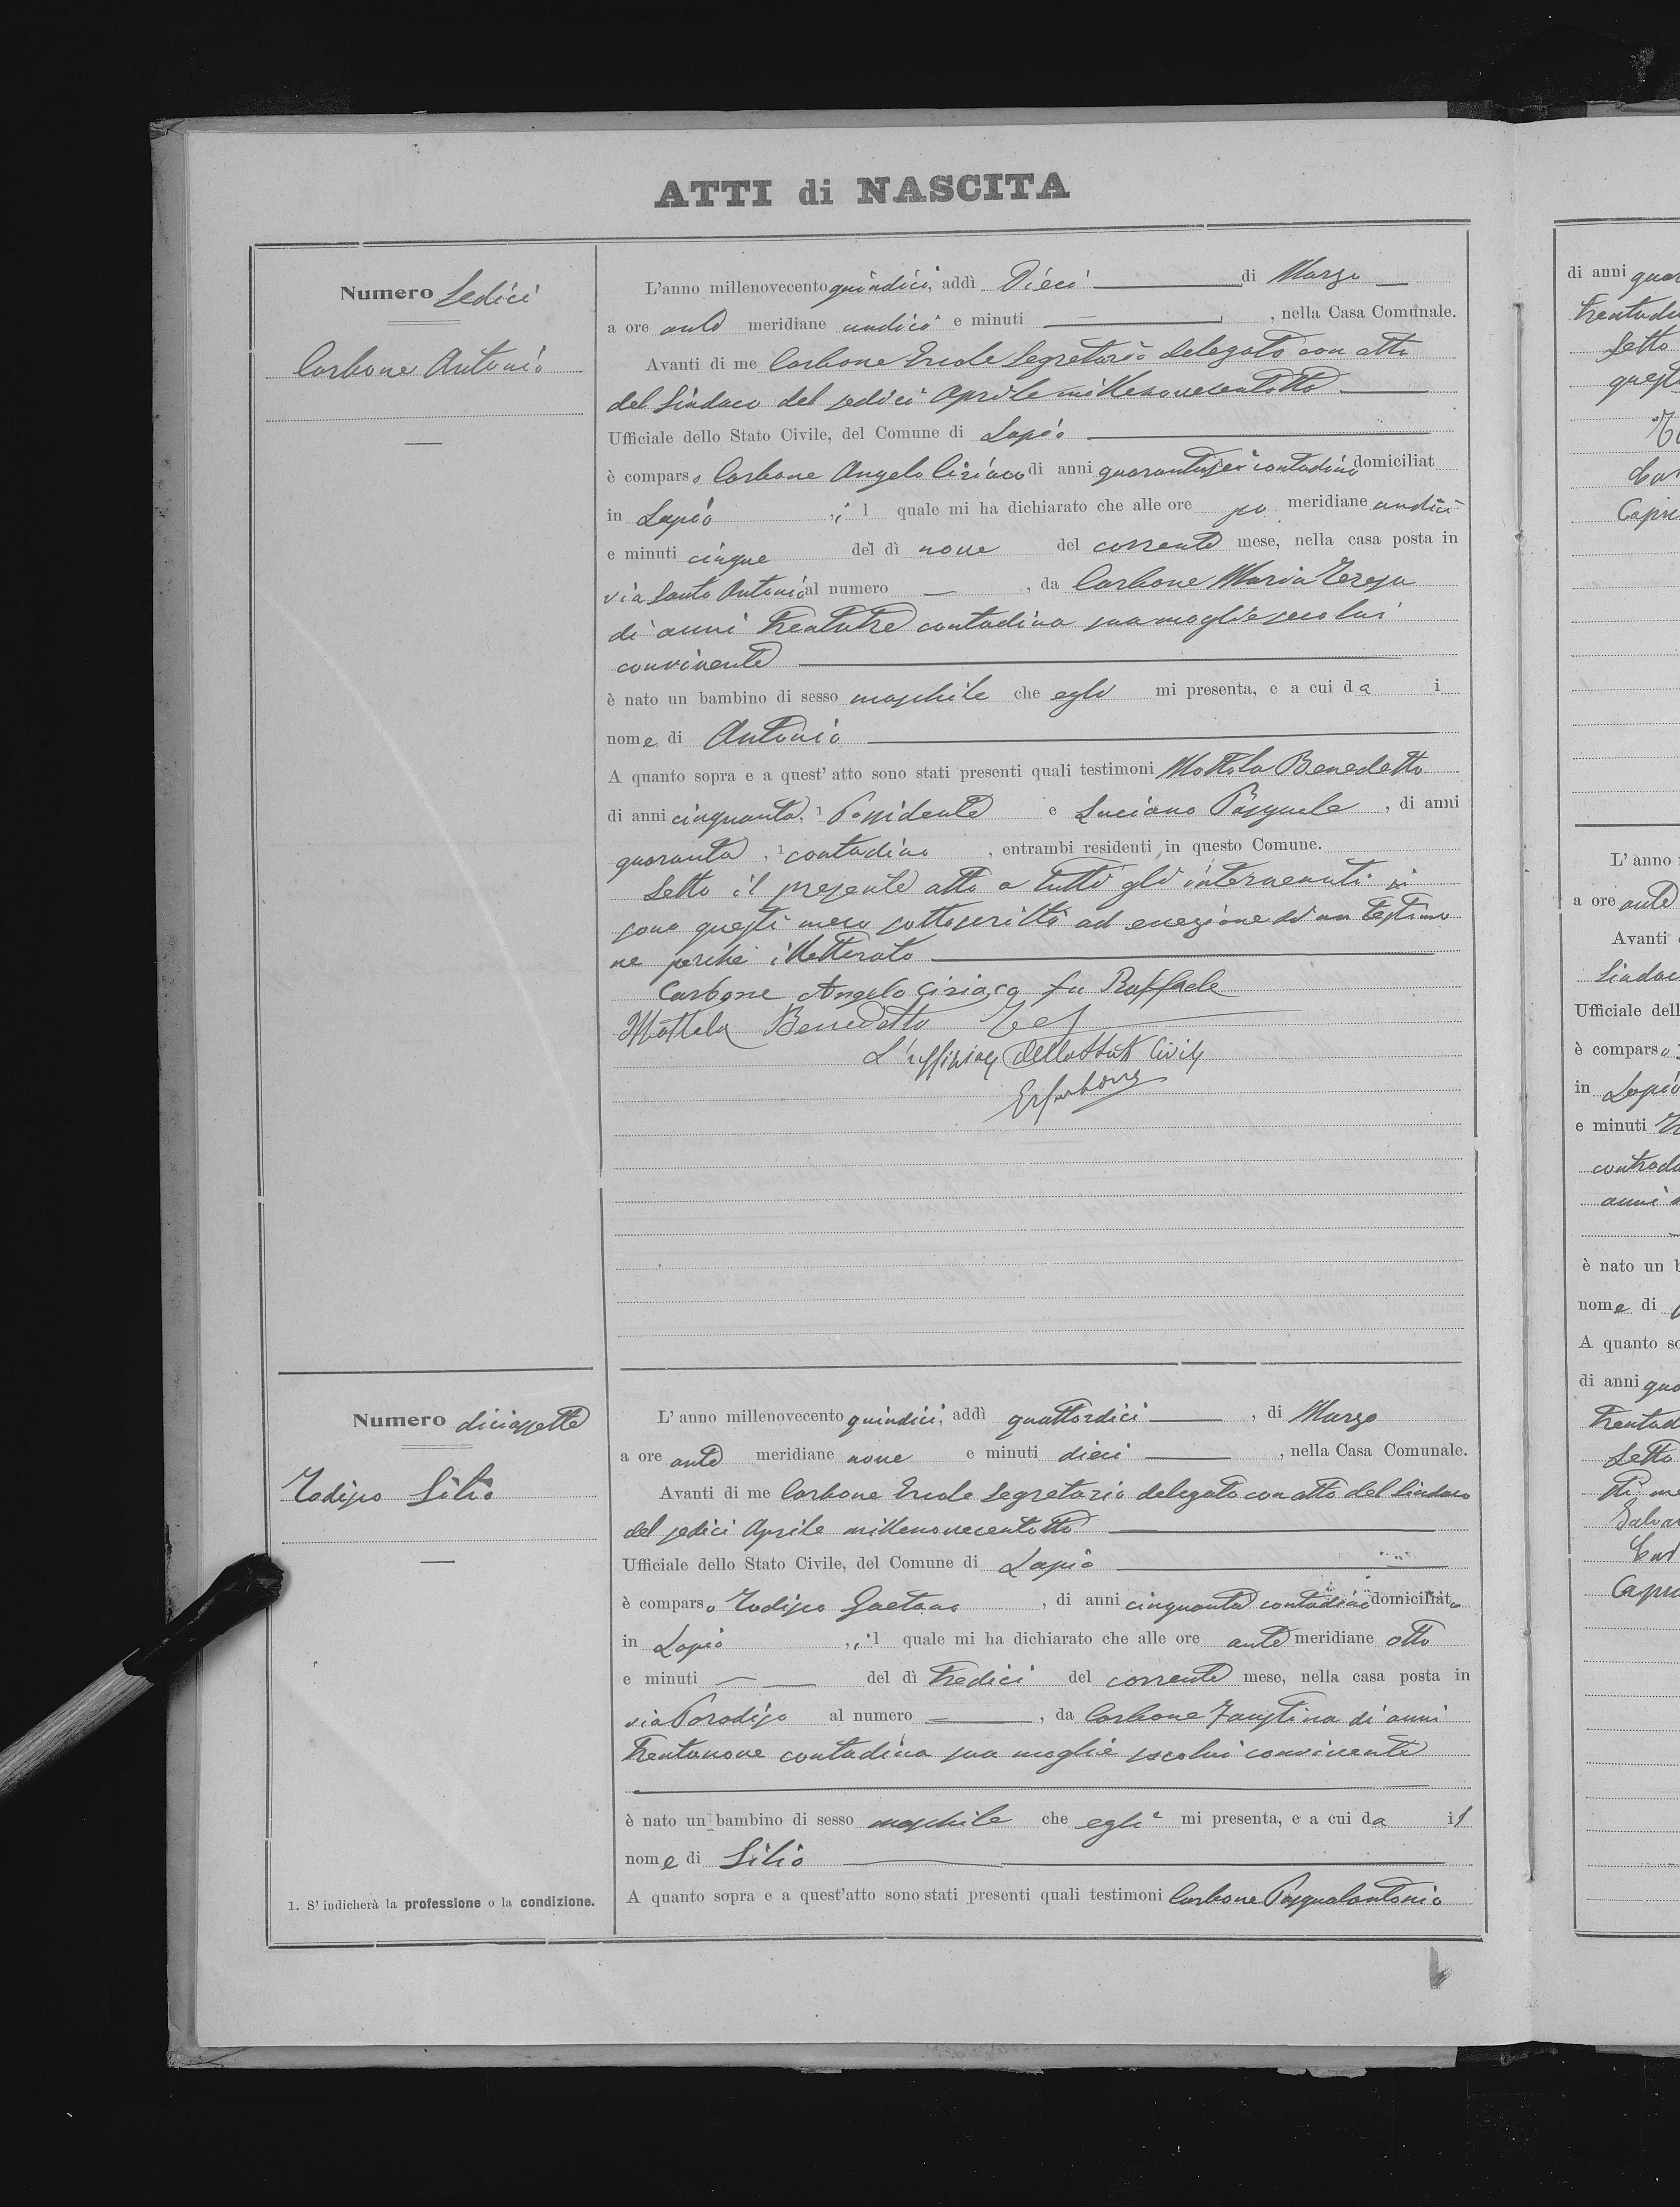 ATTI di NASCITA
Numero Sedici
Carbone Antonio
L'anno millenovecento quindici, addì Dieci di Marzo
a ore ante meridiane undici e minuti — , nella Casa Comunale.
Avanti di me Carbone Ercole Segretario delegato con atto
del Sindaco del sedici Aprile millenovecentotto
Ufficiale dello Stato Civile, del Comune di Lapio
è comparso Carbone Angelo Ciriaco di anni quarantasei contadino domiciliat
in Lapio, il quale mi ha dichiarato che alle ore po meridiane undici
e minuti cinque del dì nove del corrente mese, nella casa posta in
via Santo Antonio al numero — , da Carbone Maria Teresa
di anni trentatre contadina sua moglie seco lui
convivente
è nato un bambino di sesso maschile che egli mi presenta, e a cui da i
nome di Antonio
A quanto sopra e a quest'atto sono stati presenti quali testimoni Mottola Benedetto
di anni cinquanta, 1 Possidente e Luciano Pasquale, di anni
quaranta, 1 contadino, entrambi residenti in questo Comune.
Letto il presente atto a tutti gli intervenuti si
sono questi meco sottoscritti ad eccezione di un testimo
ne perché illetterato
Carbone Angelo Ciriaco fu Raffaele
Mottola Benedetto Tes
L'uffiziale dello Stato Civile
ECarbone
Numero diciassette
Todisco Silio
L'anno millenovecento quindici, addì quattordici, di Marzo
a ore ante meridiane nove e minuti dieci , nella Casa Comunale.
Avanti di me Carbone Ercole Segretario delegato con atto del Sindaco
del sedici Aprile millenovecentotto
Ufficiale dello Stato Civile, del Comune di Lapio
è comparso Todisco Gaetano, di anni cinquanta contadino domiciliato
in Lapio, il quale mi ha dichiarato che alle ore ante meridiane otto
e minuti — del dì tredici del corrente mese, nella casa posta in
via Paradiso al numero — , da Carbone Faustina di anni
trentanove contadina sua moglie seco lui convivente
è nato un bambino di sesso maschile che egli mi presenta, e a cui da il
nome di Silio
A quanto sopra e a quest'atto sono stati presenti quali testimoni Carbone Pasqualantonio
1. S'indicherà la professione o la condizione.
di anni
Letto
L'anno
a ore ante
Avanti
Ufficiale dell
è comparso
in Lapio
e minuti
contrada
anni
è nato un b
nome di
A quanto so
di anni
Letto